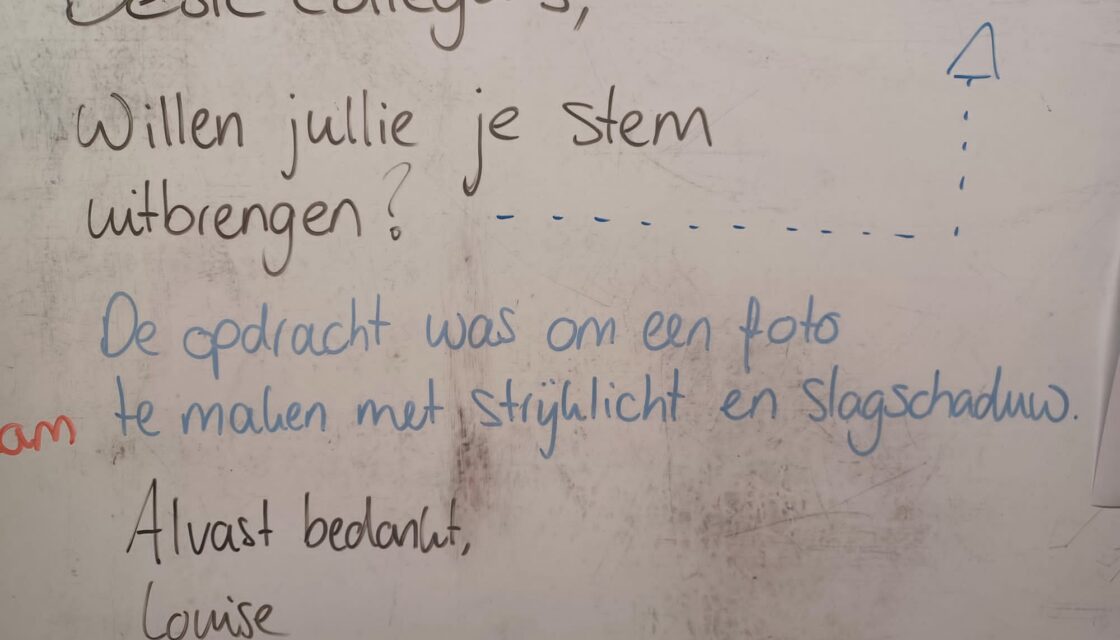 Beste collega's,
Willen jullie je stem
uitbrengen?
De opdracht was om een foto
te maken met strijklicht en slagschaduw.
am
Alvast bedankt,
Louise